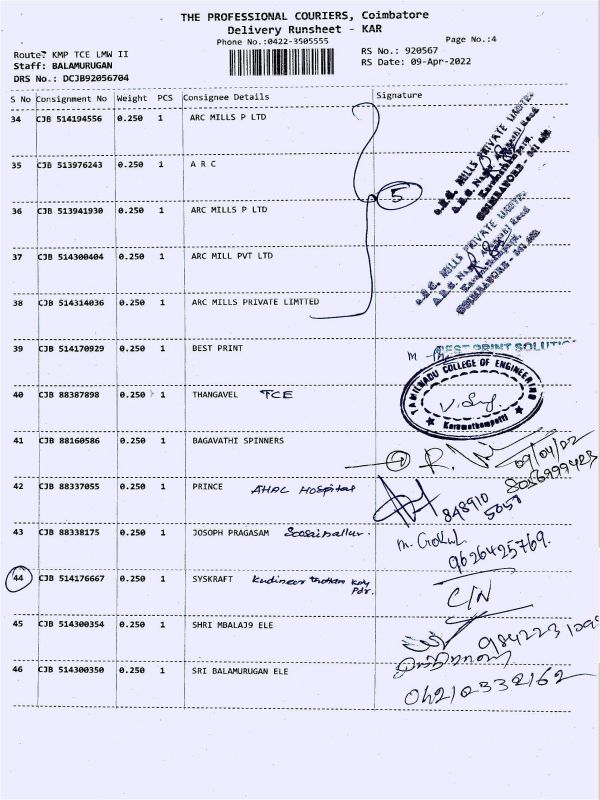 THE PROFESSIONAL COURIERS, Coimbatore
Delivery Runsheet - KAR
Phone No.:0422-3505555
Page No.:4
Route: KMP TCE LMW II
RS No.: 920567
Staff: BALAMURUGAN
RS Date: 09-Apr-2022
DRS No.: DCJB92056704
S No Consignment No Weight PCS Consignee Details Signature
34 CJB 514194556 0.250 1 ARC MILLS P LTD
35 CJB 513976243 0.250 1 A R C
5
36 CJB 513941930 0.250 1 ARC MILLS P LTD
37 CJB 514300404 0.250 1 ARC MILL PVT LTD
38 CJB 514314036 0.250 1 ARC MILLS PRIVATE LIMTTED
39 CJB 514170929 0.250 1 BEST PRINT
BEST PRINT SOLUTI
40 CJB 88387898 0.250 1 THANGAVEL TCE
TAMILNADU COLLEGE OF ENGINEERING
Karumathampatti
41 CJB 88160586 0.250 1 BAGAVATHI SPINNERS
09/04/22
42 CJB 88337055 0.250 1 PRINCE Hospital
848910
5057
43 CJB 88338175 0.250 1 JOSOPH PRAGASAM
m. Gokul
9626425769.
44 CJB 514176667 0.250 1 SYSKRAFT
C/N
45 CJB 514300354 0.250 1 SHRI MBALAJ9 ELE
46 CJB 514300350 0.250 1 SRI BALAMURUGAN ELE